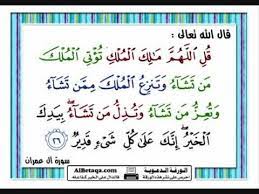 قال الله تعالى :
قُلِ اللَّهُمَّ مَالِكَ الْمُلْكِ تُؤْتِي الْمُلْكَ
مَن تَشَاءُ وَتَنزِعُ الْمُلْكَ مِمَّن تَشَاءُ
وَتُعِزُّ مَن تَشَاءُ وَتُذِلُّ مَن تَشَاءُ بِيَدِكَ
الْخَيْرُ إِنَّكَ عَلَىٰ كُلِّ شَيْءٍ قَدِيرٌ ٢٦
سورة آل عمران
الورقة الدعوية
AlBetaqa.com